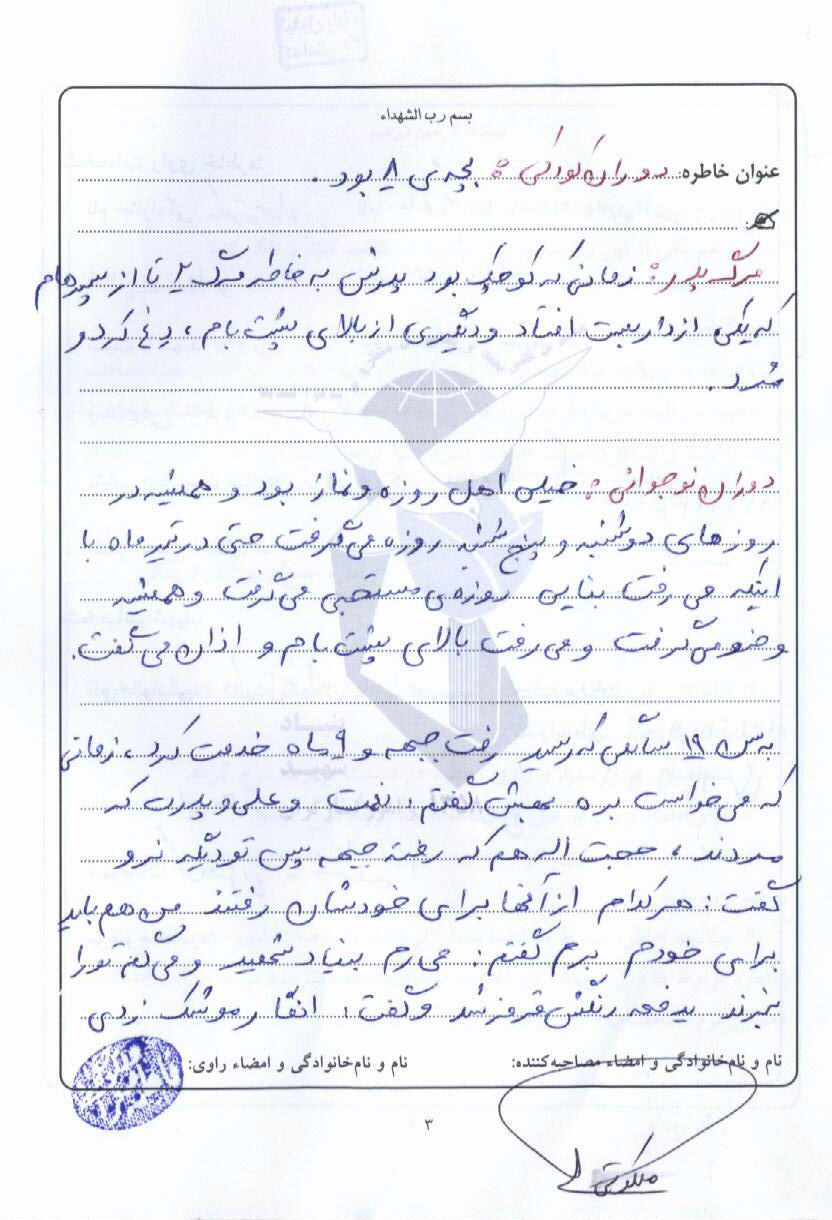 بسم رب الشهداء
عنوان خاطره: دوران کودکی: بچه‌ی ۸ بود.
مرگ پدر: زمانی که کوچک بود پدرش به خاطر مرگ ۲ تا از پسرهام
که یکی از داربست افتاد و دیگری از بالای پشت بام، دغ کرد و
مُرد.
دوران نوجوانی: خیلی اهل روزه و نماز بود و همیشه در
روزهای دوشنبه و پنج شنبه روزه می‌گرفت حتی در تیر ماه با
اینکه می رفت بنایی روزه‌ی مستحبی می‌گرفت و همیشه
وضو می‌گرفت و می رفت بالای پشت بام و اذان می‌گفت.
به سن ۱۹ سالگی که رسید رفت جبهه و ۹ ماه خدمت کرد، زمانی
که می خواست بره بهش گفتم، نعمت و علی و پدرت که
مردند، حجت اله هم که رفته جبهه پس تو دیگه نرو
گفت: هر کدام از آنها برای خودشان رفتند من هم باید
برای خودم برم گفتم: می رم بنیاد شهید و می‌گم تو را
نبرند یدفعه رنگش قرمز شد و گفت: انقار موشک زدی
نام و نام‌خانوادگی و امضاء مصاحبه‌کننده: نام و نام‌خانوادگی و امضاء راوی:
۳